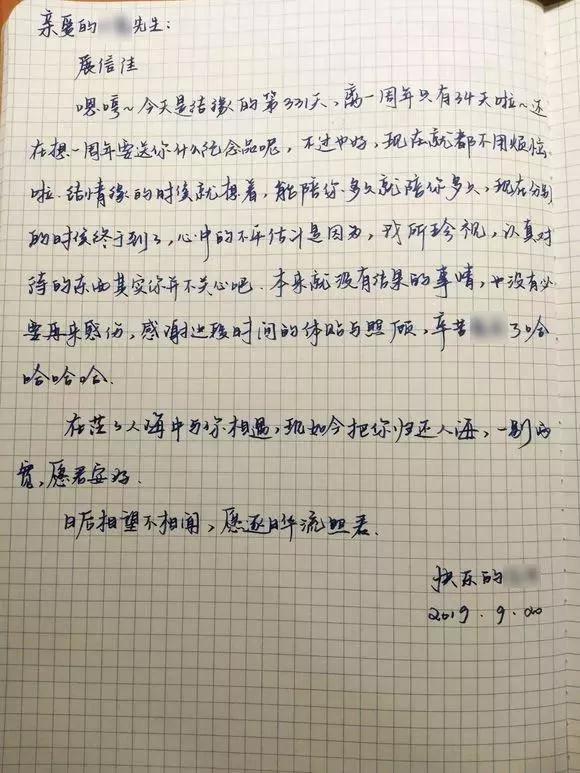 亲爱的 先生：
展信佳
嗯哼~今天是结缘的第331天，离一周年只有34天啦~还
在想一周年要送你什么纪念品呢，不过也好，现在就都不用烦恼
啦.结情缘的时候就想着，能陪你多久就陪你多久，现在分别
的时候终于到了，心中的不平估计是因为，我所珍视，认真对
待的东西其实你并不关心吧.本来就没有结果的事情，也没有必
要再来愁伤，感谢这段时间的体贴与照顾，辛苦 了哈
哈哈哈.
在茫々人海中与你相遇，现如今把你归还人海，一别两
宽，愿君安好.
日后相望不相闻，愿逐月华流照君.
快乐的
2019.9.20